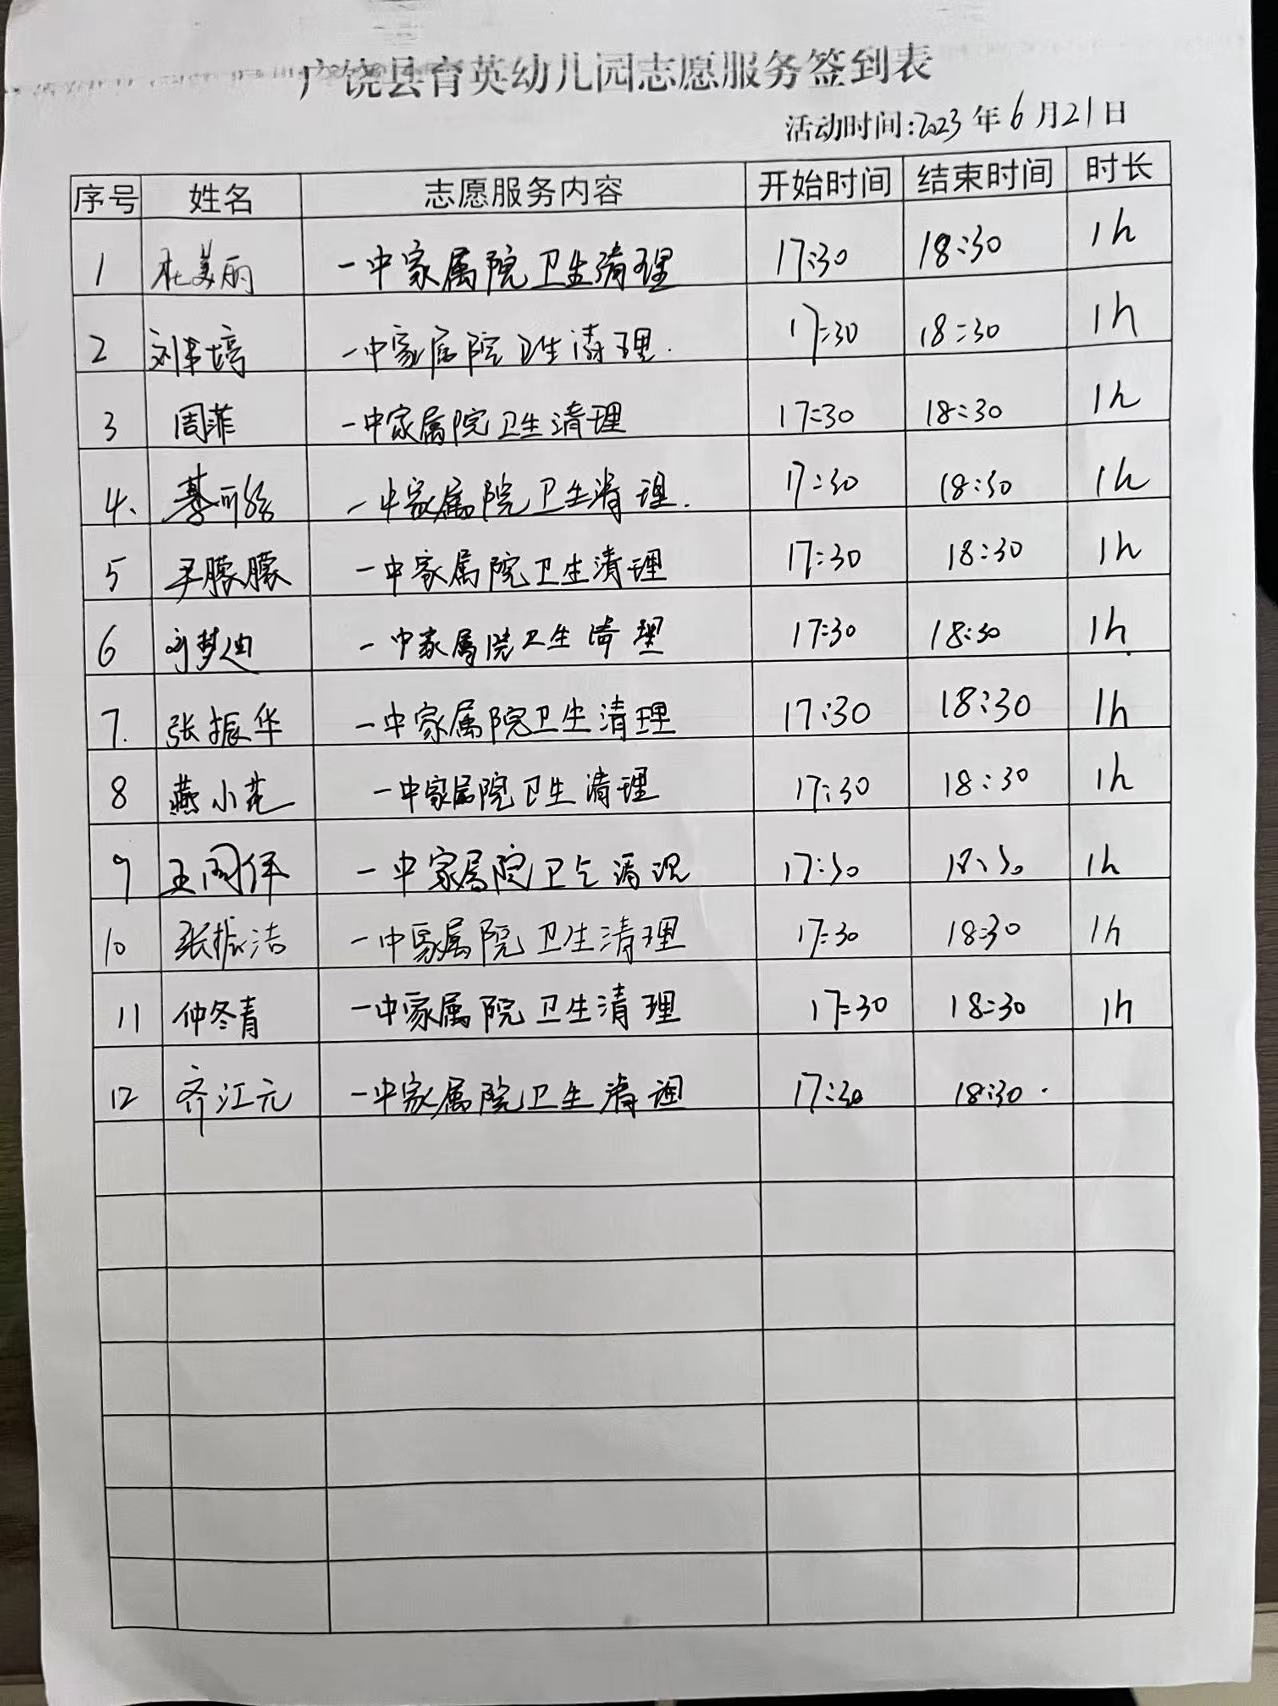 广饶县育英幼儿园志愿服务签到表
活动时间:2023年6月21日
序号 姓名 志愿服务内容 开始时间 结束时间 时长
1 杜美丽 一中家属院卫生清理 17:30 18:30 1h
2 刘 培 一中家属院卫生清理. 17:30 18:30 1h
3 周菲 一中家属院卫生清理 17:30 18:30 1h
4、 一中家属院卫生清理. 17:30 18:30 1h
5 尹朦朦 一中家属院卫生清理 17:30 18:30 1h
6 梦迪 一中家属院卫生清理 17:30 18:30 1h
7. 张振华 一中家属院卫生清理 17:30 18:30 1h
8 燕小花 一中家属院卫生清理 17:30 18:30 1h
9 王 一中家属院卫生清理 17:30 18:30 1h
10 张振洁 一中家属院卫生清理 17:30 18:30 1h
11 仲冬青 一中家属院卫生清理 17:30 18:30 1h
12 齐江元 一中家属院卫生清理 17:30 18:30.